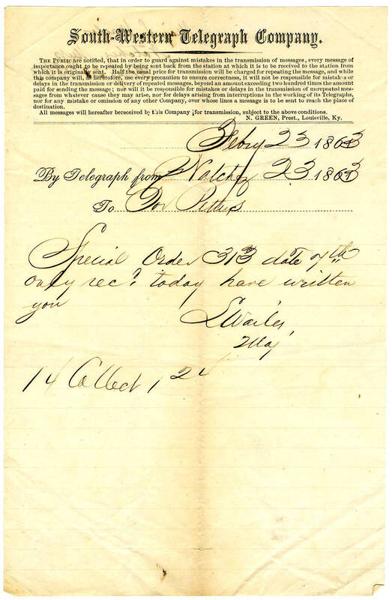 South-Western Telegraph Company.
THE PUBLIC are notified, that in order to guard against mistakes in the transmission of messages, every message of
importance ought to be repeated by being sent back from the station at which it is to be received to the station from
which it is originally sent. Half the usual price for transmission will be charged for repeating the message, and while
this company will, as heretofore, use every precaution to ensure correctness, it will not be responsible for mistakes or
delays in the transmission or delivery of repeated messages, beyond an amount exceeding two hundred times the amount
paid for sending the message; nor will it be responsible for mistakes or delays in the transmission of unrepeated mes-
sages from whatever cause they may arise, nor for delays arising from interruptions in the working of its Telegraphs,
nor for any mistake or omission of any other Company, over whose lines a message is to be sent to reach the place of
destination.
All messages will hereafter be received by this Company for transmission, subject to the above conditions.
N. GREEN, Prest., Louisville, Ky.
Feby 23 1863
By Telegraph from Natchez 23 1863
To Gov Pettus
Special Order 313 date 7th
only recd today have written
you
L Wailes
Maj
14 Collect 1 2